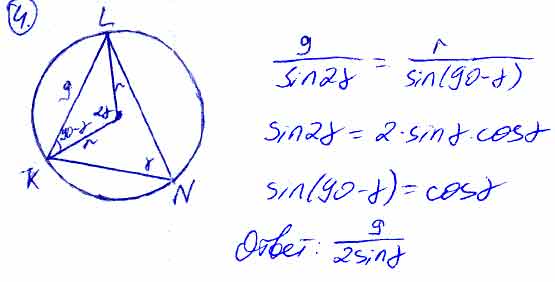 4.
L
g
2γ
r
90-γ
r
γ
K
N
g/sin2γ = r/sin(90-γ)
sin2γ = 2·sinγ·cosγ
sin(90-γ) = cosγ
Ответ: g/2sinγ